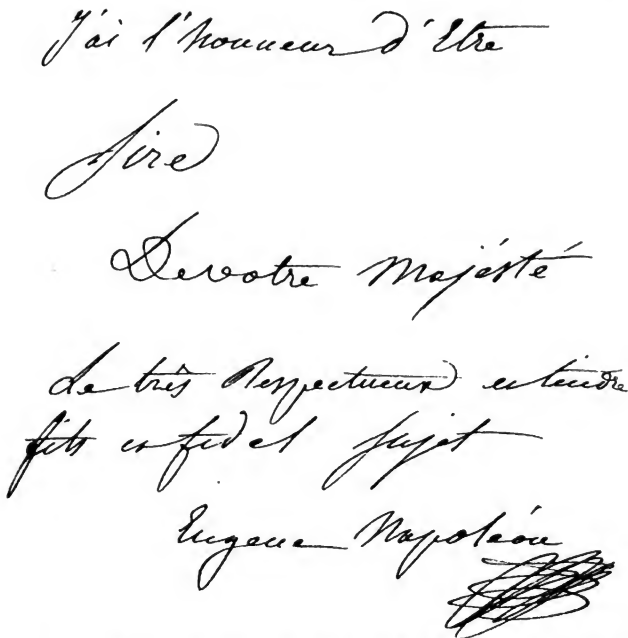 J'ai l'honneur d'Etre
Sire
De votre Majésté
Le très Respectueux et tendre
fils et fidel sujet
Eugene Napoléon